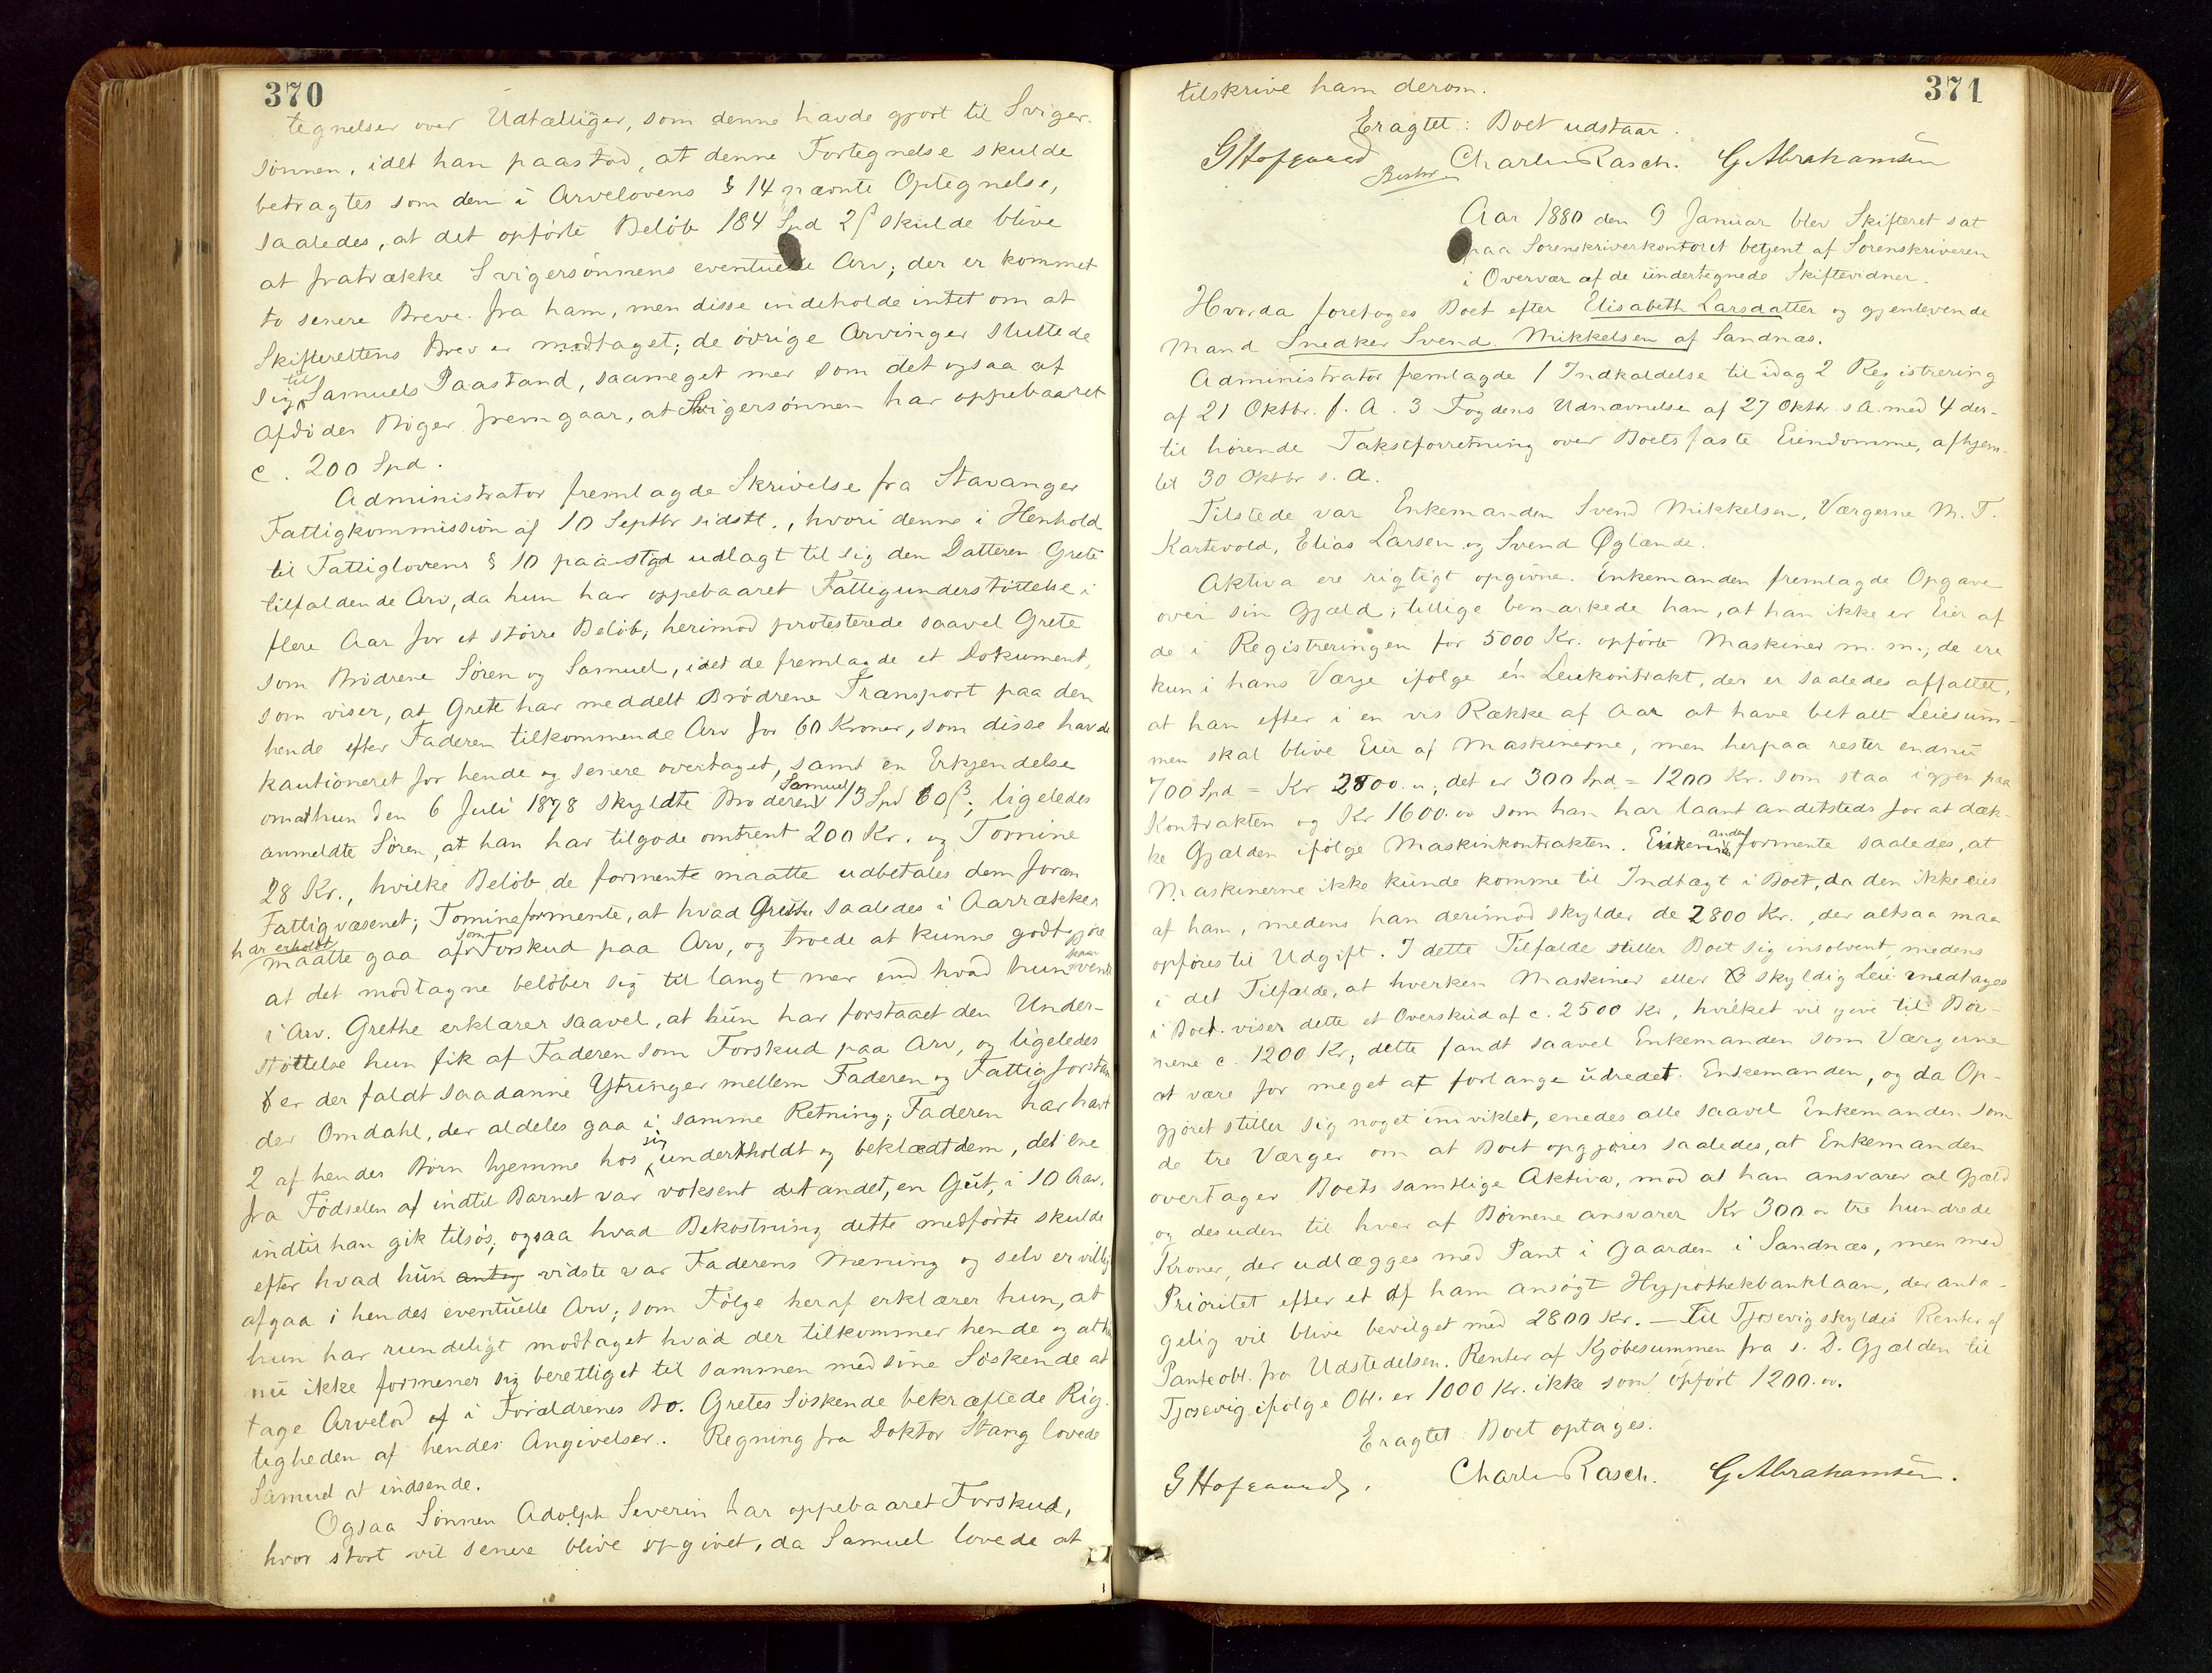 370
tegnelser over Udtælliger, som denne havde gjort til Sviger-
sønnen, idet han paastod, at denne Fortegnelse skulde
betragtes som den i Arvelovens § 14 nævnte Optegnelse,
saaledes, at det opførte Beløb 184 Spd 2 ß skulde blive
at fratrække Svigersønnens eventuelle Arv; der er kommet
to senere Breve fra ham, men disse indeholde intet om at
Skifterettens Brev er modtaget; de øvrige Arvinger sluttede
sig til Samuels Paastand, saameget mer som det ogsaa af
Afdødes Bøger fremgaar, at Svigersønnen har oppebaaret
c. 200 Spd.
Administrator fremlagde Skrivelse fra Stavanger
Fattigkommission af 10 Septbr sidstl., hvori denne i Henhold
til Fattiglovens § 10 paastod udlagt til sig den Datteren Grete
tilfaldende Arv, da hun har oppebaaret Fattigunderstøttelse i
flere Aar for et større Beløb, herimod protesterede saavel Grete
som Brødrene Søren og Samuel, idet de fremlagde et Dokument,
som viser, at Grete har meddelt Brødrene Transport paa den
hende efter Faderen tilkommende Arv for 60 Kroner, som disse havde
kautioneret for hende og senere overtaget, samt en Erkjendelse
om at hun den 6 Juli 1878 skyldte Broderen Samuel 13 Spd 60 ß; ligeledes
anmeldte Søren, at han har tilgode omtrent 200 Kr. og Tomine
28 Kr., hvilke Beløb de formente maatte udbetales dem foran
Fattigvæsenet; Tomine formente, at hvad Grethe saaledes i Aarrækker
har erholdt maatte gaa af som Forskud paa Arv, og troede at kunne godtgjøre
at det modtagne beløber sig til langt mer end hvad hun kan vente
i Arv. Grethe erklærer saavel, at hun har forstaaet den Under-
støttelse hun fik af Faderen som Forskud paa Arv, og ligeledes
er der faldt saadanne Ytringer mellem Faderen og Fattigforstan
der Omdahl, der aldeles gaa i samme Retning; Faderen har havt
2 af hendes Børn hjemme hos sig underholdt og beklædt dem, det ene
fra Fødselen af indtil Barnet var voksent det andet, en Gut, i 10 Aar,
indtil han gik tilsøs; ogsaa hvad Bekostning dette medførte skulde
efter hvad hun antog vidste var Faderens Mening og selv er villig
afgaa i hendes eventuelle Arv; som Følge heraf erklærer hun, at
hun har rundeligt modtaget hvad der tilkommer hende og at hun
nu ikke formener sig berettiget til sammen med sine Søskende at
tage Arvelod af i Forældrenes Bo. Gretes Søskende bekræftede Rig-
tigheden af hendes Angivelser. Regning fra Doktor Stang lovede
Samuel at indsende.
Ogsaa Sønnen Adolph Severin har oppebaaret Forskud,
hvor stort vil senere blive opgivet, da Samuel lovede at
371
tilskrive ham derom.
Eragtet: Boet udstaar.
GHofgaard Charles Rasch. G. Abrahamsen
Aar 1880 den 9 Januar blev Skifteret sat
paa Sorenskriverkontoret betjent af Sorenskriveren
i Overvær af de undertegnede Skiftevidner.
Hvorda foretoges Boet efter Elisabeth Larsdatter og gjenlevende
Mand Snedker Svend Mikkelsen af Sandnæs.
Administrator fremlagde 1 Indkaldelse til idag 2 Registrering
af 21 Oktbr. f. A. 3 Fogdens Udnævnelse af 27 Oktbr. s. A. med 4 der-
til hørende Takstforretning over Boets faste Eiendomme, afhjem-
let 30 Oktbr s. A.
Tilstede var Enkemanden Svend Mikkelsen, Værgerne M. T.
Kartevold, Elias Larsen og Svend Øglænde.
Aktiva ere rigtigt opgivne. Enkemanden fremlagde Opgave
over sin Gjæld; tillige bemærkede han, at han ikke er Eier af
de i Registreringen for 5000 Kr. opførte Maskiner m. m.; de ere
kun i hans Værge ifølge én Leiekontrakt, der er saaledes affattet,
at han efter i en vis Række af Aar at have betalt Leiesum-
men skal blive Eier af Maskinerne, men herpaa rester endnu
700 Spd = Kr 2800. „; det er 300 Spd = 1200 Kr. som staa igjen paa
Kontrakten og Kr 1600.00 som han har laant andetsteds for at dæk-
ke Gjælden ifølge Maskinkontrakten. Enkemanden formente saaledes, at
Maskinerne ikke kunde komme til Indtægt i Boet, da den ikke eies
af ham, medens han derimod skylder de 2800 Kr., der altsaa maa
opføres til Udgift. I dette Tilfælde stiller Boet sig insolvent, medens
i det Tilfælde, at hverken Maskiner eller skyldig Leie medtages
i Boet viser dette et Overskud af c. 2500 Kr, hvilket vil give til Bør-
nene c. 1200 Kr; dette fandt saavel Enkemanden som Værgerne
at være for meget at forlange udredet. Enkemanden, og da Op-
gjøret stiller sig noget indviklet, enedes alle saavel Enkemanden som
de tre Værger om at Boet opgjøres saaledes, at Enkemanden
overtager Boets samtlige Aktiva, mod at han ansvarer al Gjæld
og desuden til hver af Børnene ansvarer Kr 300. „ tre hundrede
Kroner, der udlægges med Pant i Gaarden i Sandnæs, men med
Prioritet efter et af ham ansøgt Hypothekbanklaan, der anta-
gelig vil blive bevilget med 2800 Kr. — Til Tjosevig skyldes Renter af
Panteobl. fra Udstedelsen. Renter af Kjøbesummen fra s. D. Gjælden til
Tjosevig ifølge Obl. er 1000 Kr. ikke som opført 1200.00.
Eragtet: Boet optages.
GHofgaard. Charles Rasch. G. Abrahamsen.